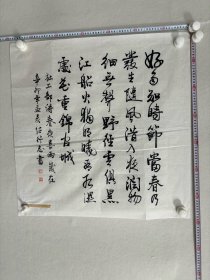 好雨知時節當春乃
發生隨風潛入夜潤物
細無聲野徑雲俱黑
江船火獨明曉看紅濕
處花重錦官城
杜工部詩春夜喜雨歲在
辛卯年孟夏書